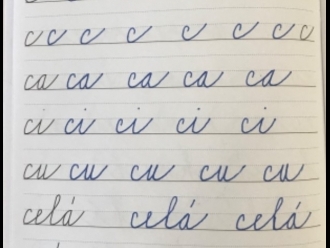 c c c c c c c c
ca ca ca ca ca
ci ci ci ci ci
cu cu cu cu cu
celá celá celá